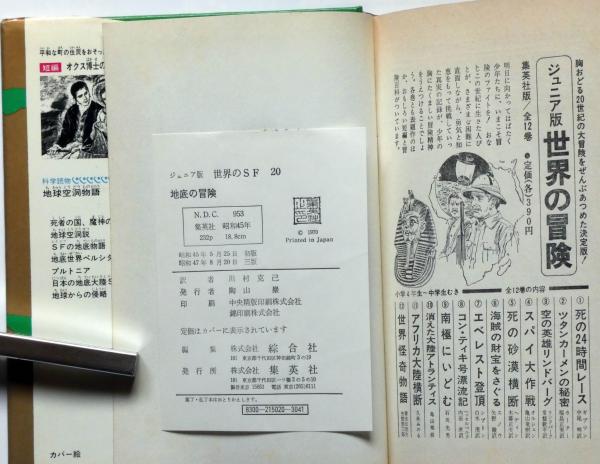 平和な町の住民をおそっ
短編
オクス博士の
科学読物
地球空洞物語
死者の国、魔神の
地球空洞説
SFの地底物語
地底世界ペルシダ
プルトニア
日本の地底大陸S
地球からの侵略
カバー絵
ジュニア版 世界のSF 20
地底の冒険
N.D.C. 953
集英社 昭和45年
232p 18.8cm
© 1970
Printed in Japan
昭和45年5月25日 初版
昭和47年8月20日 三版
訳者 川村克己
発行者 陶山巌
印刷 中央精版印刷株式会社
錦印刷株式会社
定価はカバーに表示されています
編集 株式会社 綜合社
101 東京都千代田区神田錦町3の10
発行所 株式会社 集英社
101 東京都千代田区一ツ橋2の5の10
落丁・乱丁本はおとりかえします。
8300-215020-3041
胸おどる20世紀の大冒険をぜんぶあつめた決定版!
ジュニア版 世界の冒険
集英社版/全12巻 ●定価(各)390円
明日に向かってはばたく
少年たちに、いまこそ冒
険のファイトを! おな
じこの世紀に生きた人び
とが、さまざまな困難に
直面しながら、勇気と知
恵をもって挑戦していっ
た真実の記録が、少年の
胸にたくましい冒険精神
をうえつけることでしょ
う。各巻とも表題作のほ
か、おもしろい短編と冒
険百科がついています。
小学4年生〜中学生むき
全12巻の内容
①死の24時間レース
②ツタンカーメンの秘密
③空の英雄リンドバーグ
④スパイ大作戦
⑤死の砂漠横断
⑥海賊の財宝をさぐる
⑦エベレスト登頂
⑧コン・ティキ号漂流記
⑨南極にいどむ
⑩消えた大陸アトランティス
⑪アフリカ大陸横断
⑫世界怪奇物語